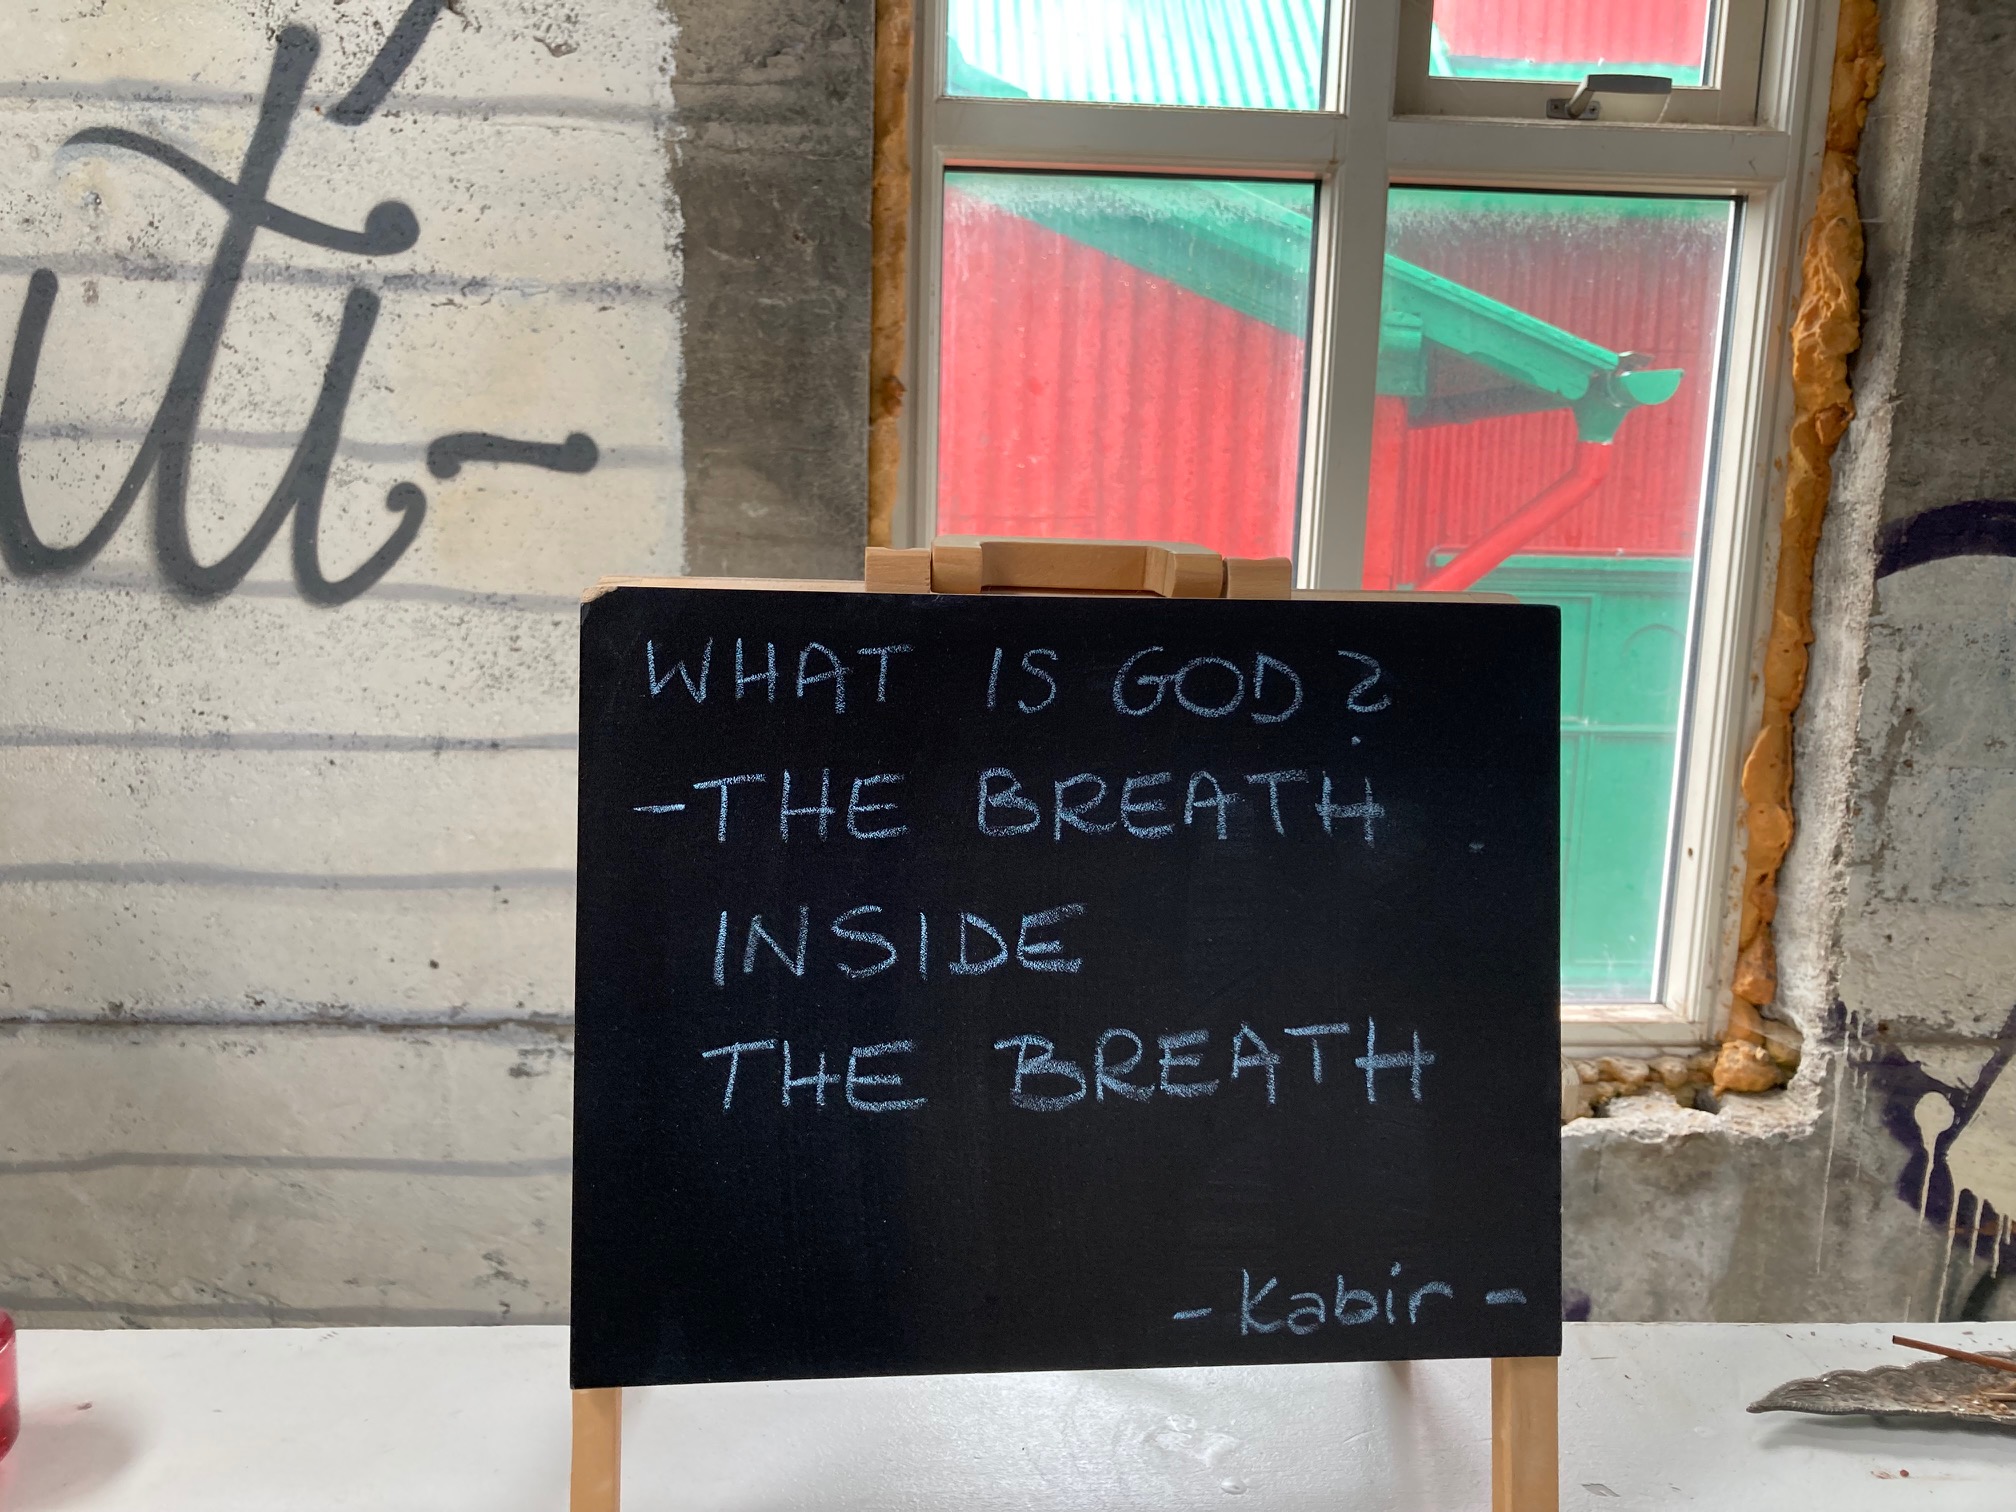 WHAT IS GOD?
-THE BREATH
INSIDE
THE BREATH
- Kabir -